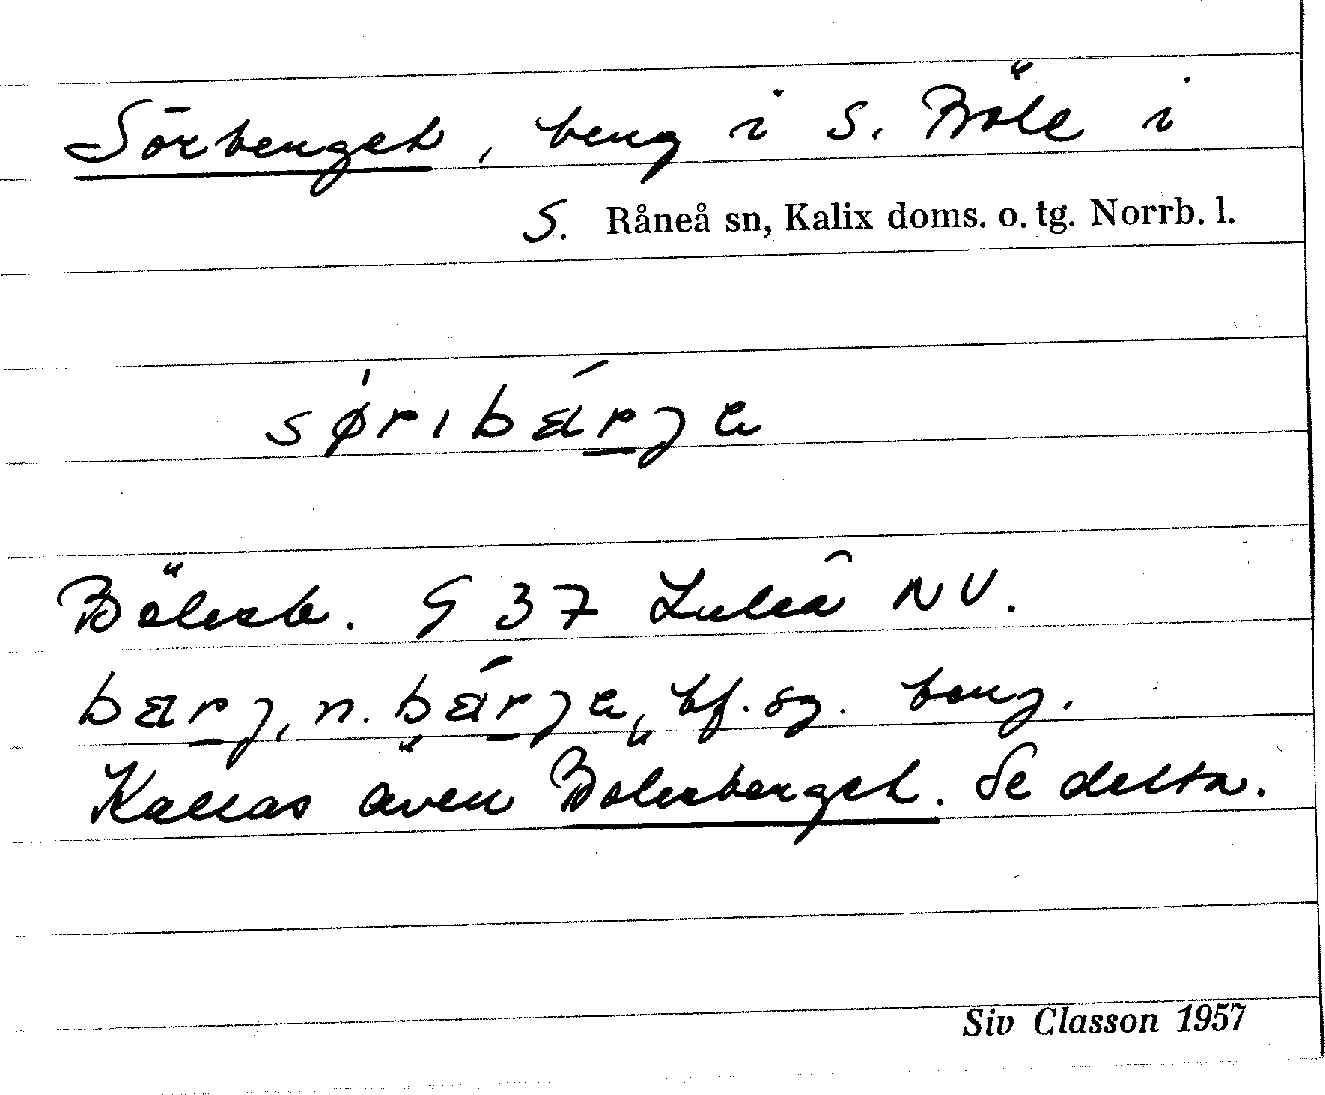 Sörberget, berg i S. Böle i
S. Råneå sn, Kalix doms. o. tg. Norrb. l.
sø̀rıbǽrje
Bölesb. G 37 Luleå NV.
bærj, n. bǽrje, bf. sg. berg.
Kallas även Bölesberget. Se detta.
Siv Classon 1957